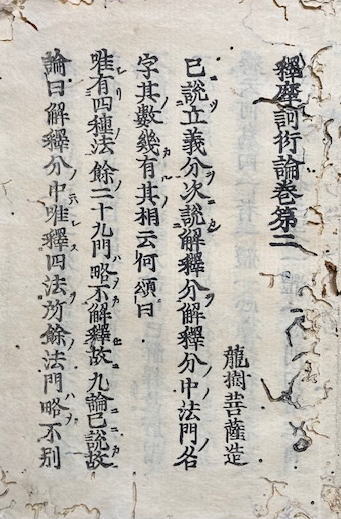 釋摩訶衍論卷第二
龍樹菩薩造
已說立義分次說解釋分解釋分中法門名
字其數幾有其相云何頌曰
唯有四種法餘二十九門略不解釋故九論已說故
論曰解釋分中唯釋四法所餘法門略不別